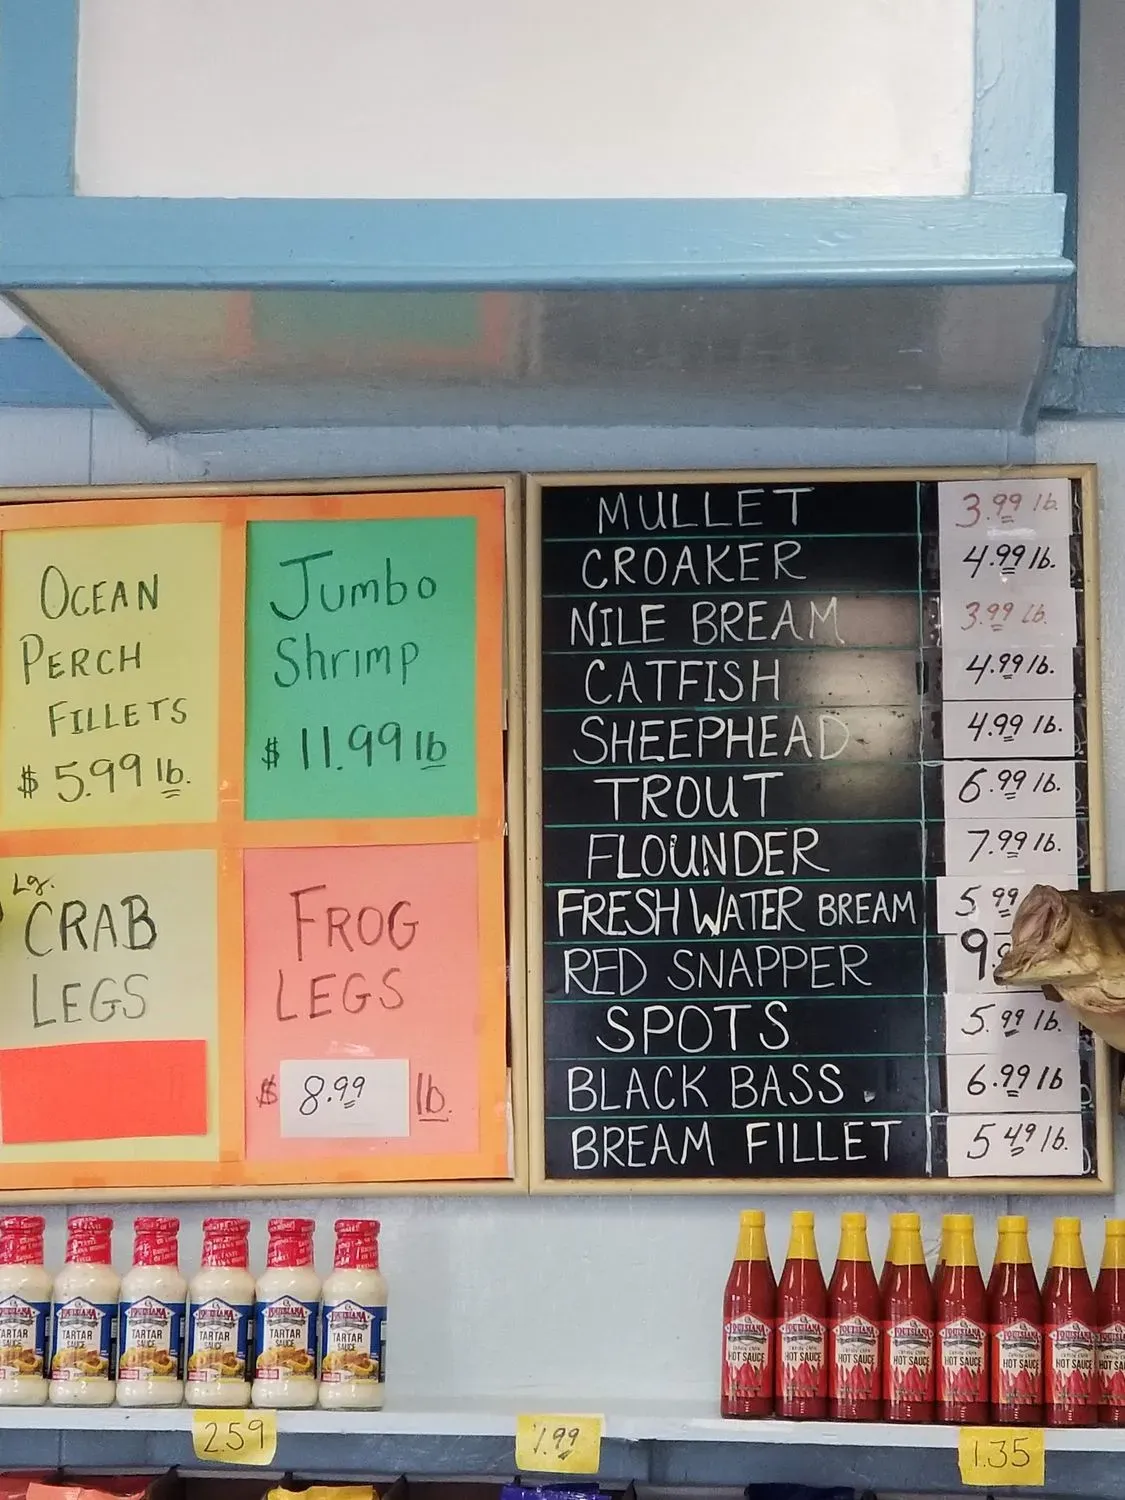 OCEAN
PERCH
FILLETS
$ 5.99 lb.
Jumbo
Shrimp
$ 11.99 lb
Lg.
CRAB
LEGS
FROG
LEGS
$ 8.99 lb.
MULLET 3.99 lb.
CROAKER 4.99 lb.
NILE BREAM 3.99 lb.
CATFISH 4.99 lb.
SHEEPHEAD 4.99 lb.
TROUT 6.99 lb.
FLOUNDER 7.99 lb.
FRESH WATER BREAM 5 99
RED SNAPPER 9
SPOTS 5.99 lb.
BLACK BASS 6.99 lb
BREAM FILLET 5 49 lb.
LOUISIANA
TARTAR
SAUCE
LOUISIANA
TARTAR
SAUCE
LOUISIANA
TARTAR
SAUCE
LOUISIANA
TARTAR
SAUCE
LOUISIANA
TARTAR
SAUCE
LOUISIANA
TARTAR
SAUCE
LOUISIANA
HOT SAUCE
LOUISIANA
HOT SAUCE
LOUISIANA
HOT SAUCE
LOUISIANA
HOT SAUCE
LOUISIANA
HOT SAUCE
LOUISIANA
HOT SAUCE
LOUISIANA
HOT SAUCE
LOUISIANA
HOT SAUCE
2.59
1.99
1.35